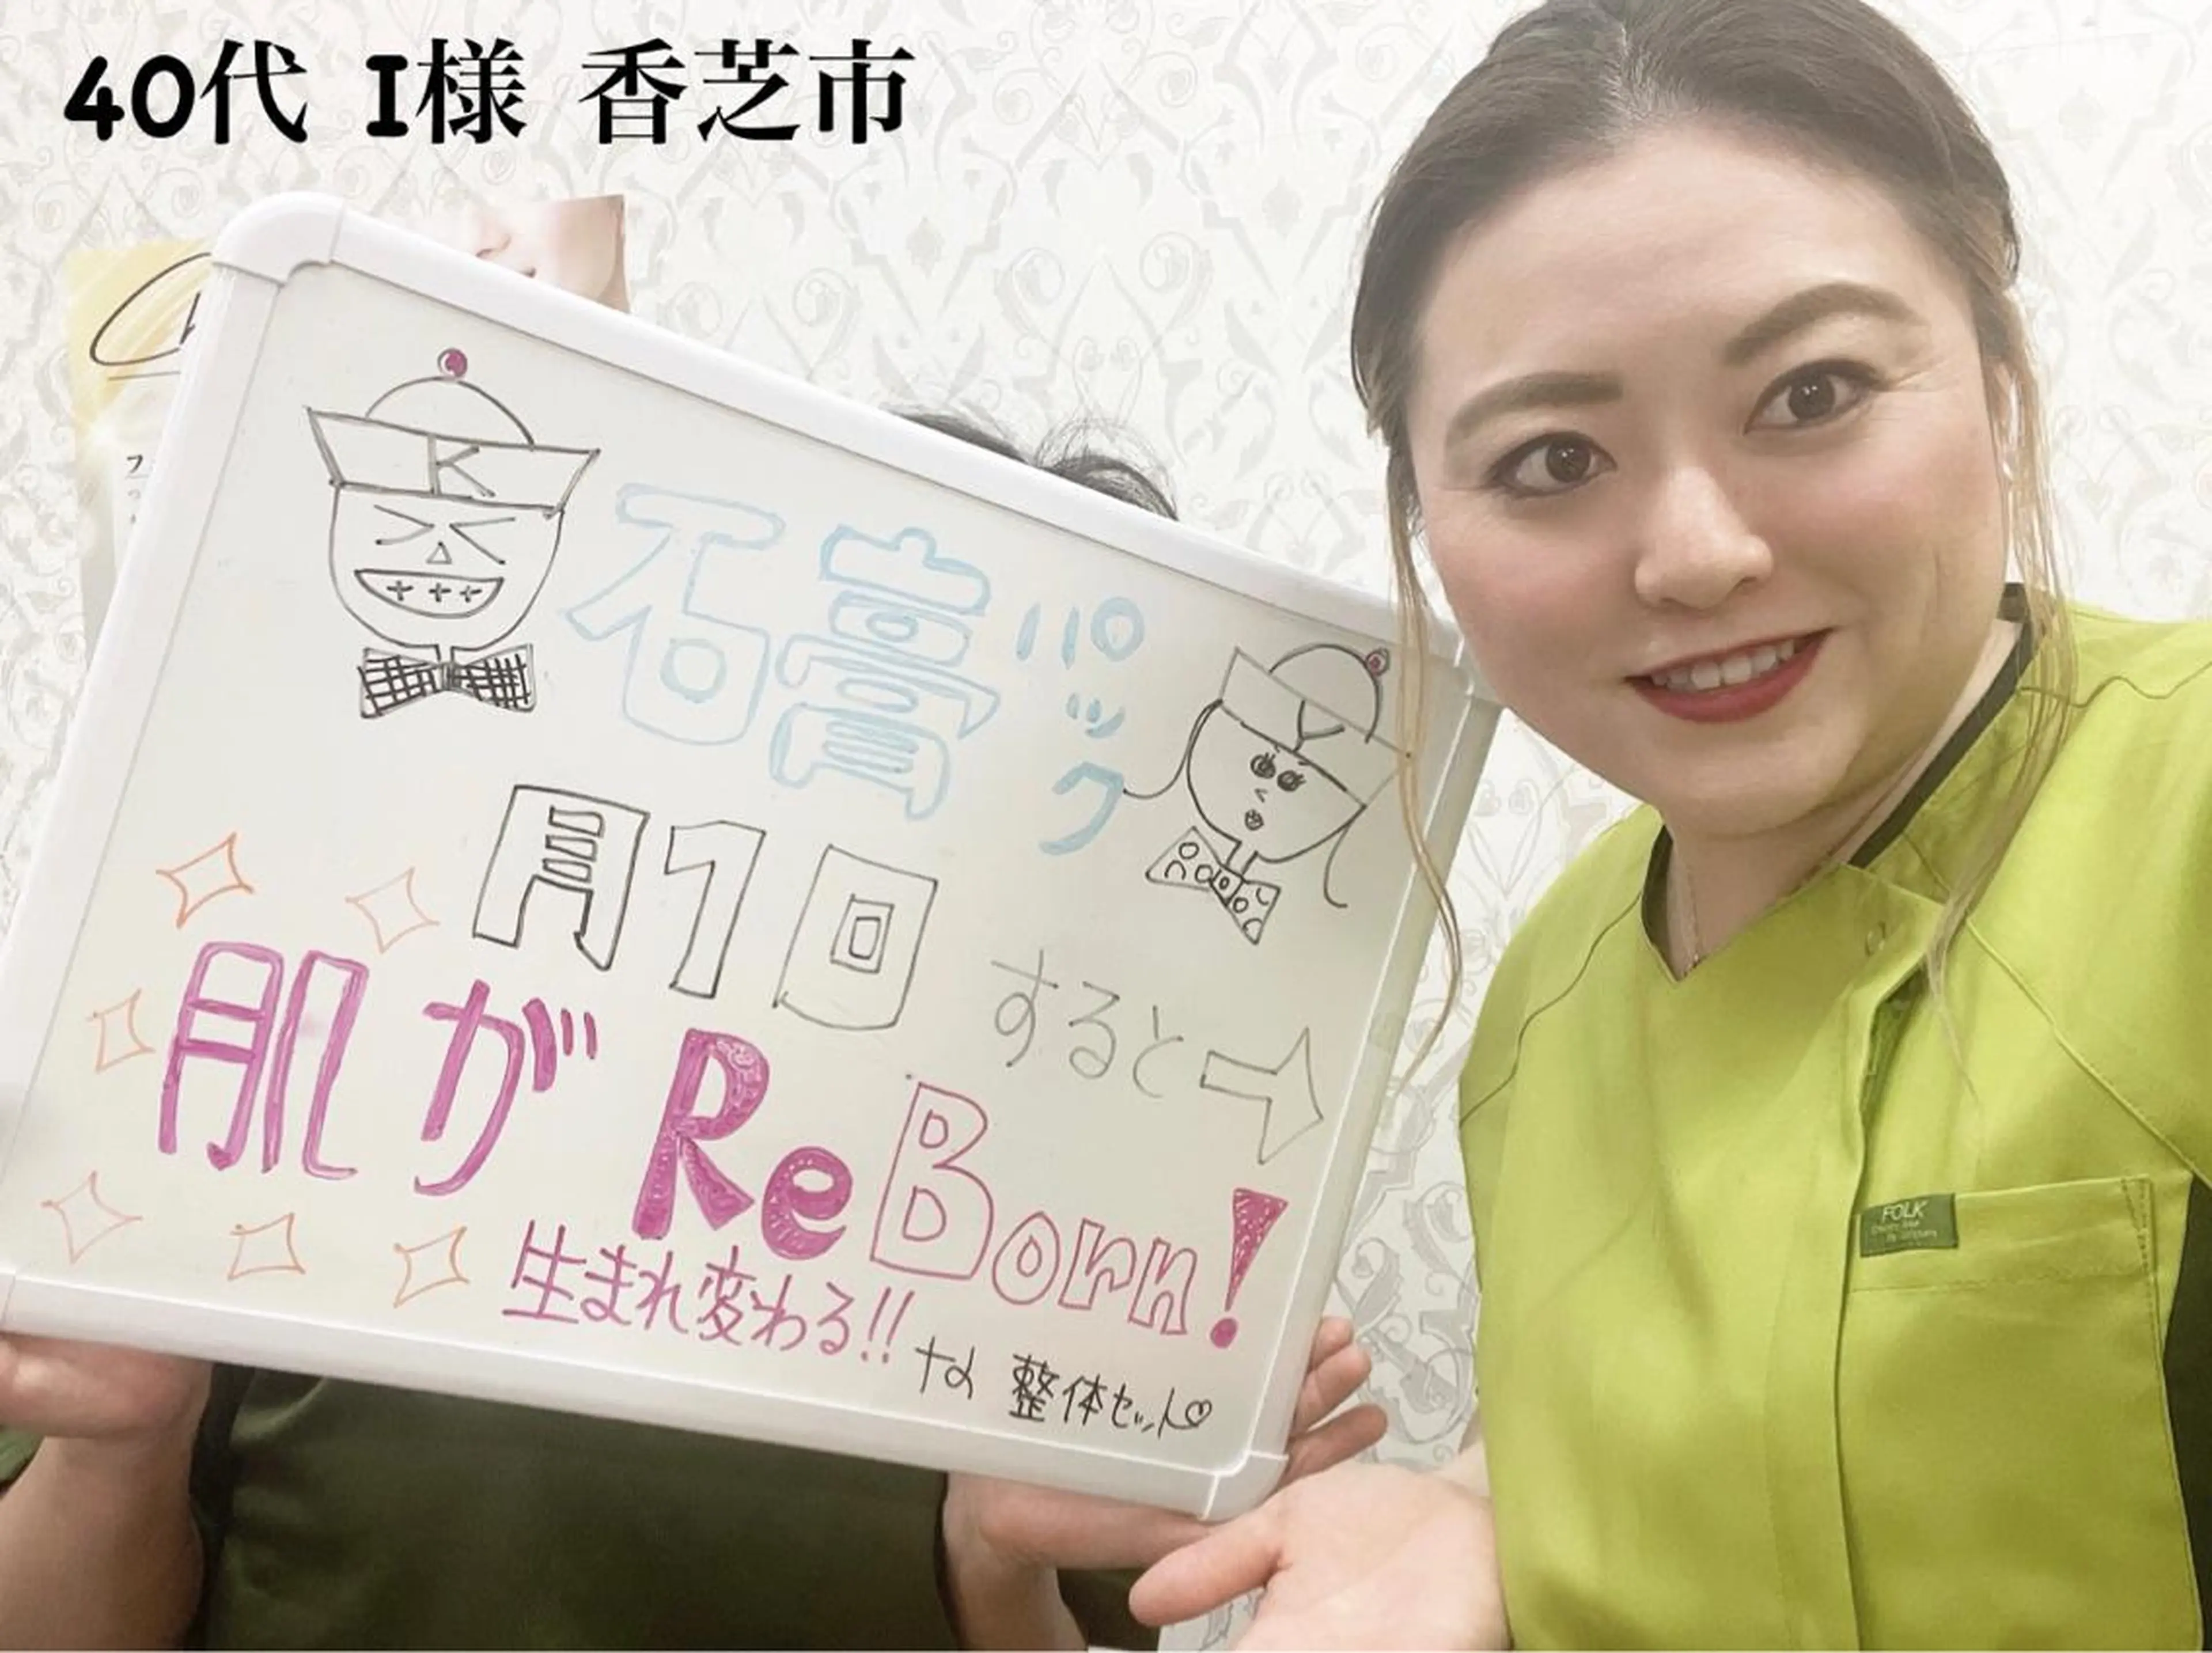 40代 I様 香芝市
K
石膏パック
Y
月1回 すると→
肌が ReBorn!
生まれ変わる!!
な 整体セット♡
FOLK